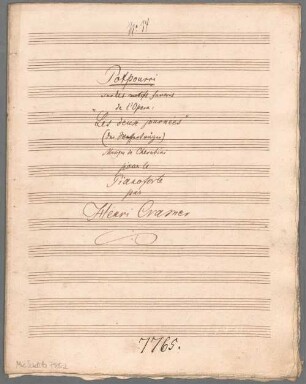 No. 14
Potpourri
sur les motifs favoris
de l'Opera:
"Les deux journées"
(Der Wasserträger)
Musique de Cherubini
pour le
Pianoforte
par
Henri Cramer
7765.